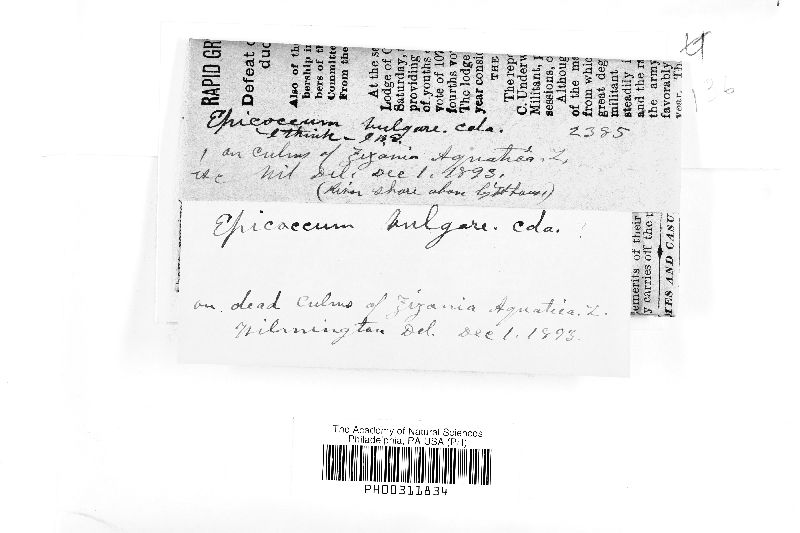 RAPID GR
Defeat
duc
Also of the
bership i
bers of th
Committee
From the
At the se
Lodge of
Saturday,
providing
of youths
vote of 107
fourths vo
The lodge
year consi
THE
The rep
C. Underw
Militant,
sessions,
Although
of the me
from whic
great deg
militant
steadily
and the r
the army
favorably
year. Th
136
Epicoccum vulgare. cda. 2385
I think - 
, on culms of Zizania Aquatica. L,
Wil Del. Dec 1. 1893.
(River shore above Lighthouse)
Epicoccum vulgare. cda. ?
ements of their
y carries off the
MES AND CASU
on dead culms of Zizania Aquatica. L.
Wilmington Del. Dec 1. 1893.
The Academy of Natural Sciences
Philadelphia, PA USA (PH)
PH00311834